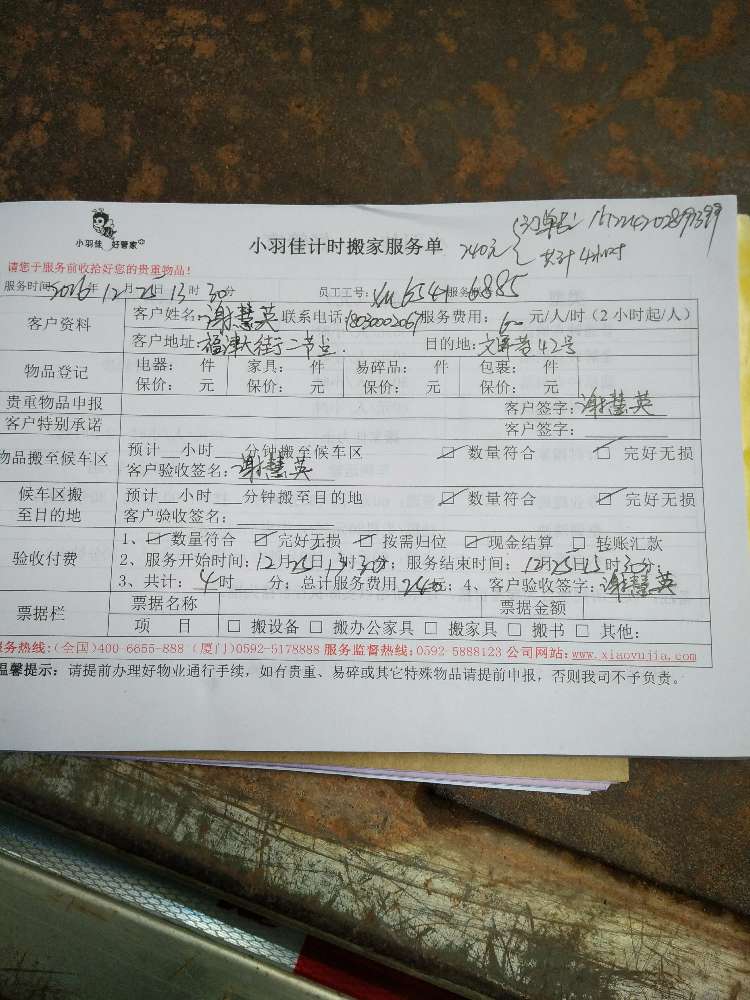 小羽佳 好管家
小羽佳计时搬家服务单
240元
订单号:
共计4小时
请您于服务前收拾好您的贵重物品!
服务时间:2016年12月25日13时30分 员工工号: 6541 6885
客户资料
客户姓名:谢慧英 联系电话:18030002067 服务费用:60元/人/时(2小时起/人)
客户地址:福津大街 目的地: 42号
物品登记
电器: 件 家具: 件 易碎品: 件 包裹: 件
保价: 元 保价: 元 保价: 元 保价: 元
贵重物品申报 客户签字:谢慧英
客户特别承诺 客户签字:
物品搬至候车区
预计__小时__分钟搬至候车区 ☑ 数量符合 ☑ 完好无损
客户验收签名:谢慧英
候车区搬至目的地
预计__小时__分钟搬至目的地 ☑ 数量符合 ☑ 完好无损
客户验收签名:
验收付费
1、☑ 数量符合 ☑ 完好无损 ☑ 按需归位 ☑ 现金结算 □ 转账汇款
2、服务开始时间:12月25日13时30分;服务结束时间:12月25日15时30分;
3、共计:4时__分;总计服务费用240元;4、客户验收签字:谢慧英
票据栏
票据名称 票据金额
项 目 □ 搬设备 □ 搬办公家具 □ 搬家具 □ 搬书 □ 其他:
服务热线:(全国)400-6655-888 (厦门)0592-5178888 服务监督热线:0592-5888123 公司网站:www.xiaoyujia.com
温馨提示:请提前办理好物业通行手续,如有贵重、易碎或其它特殊物品请提前申报,否则我司不予负责。